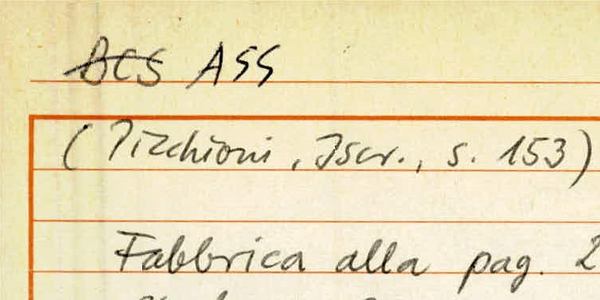 BCS ASS
(Pizchioni, Iscr., s. 153)
Fabbrica alla pag. 2